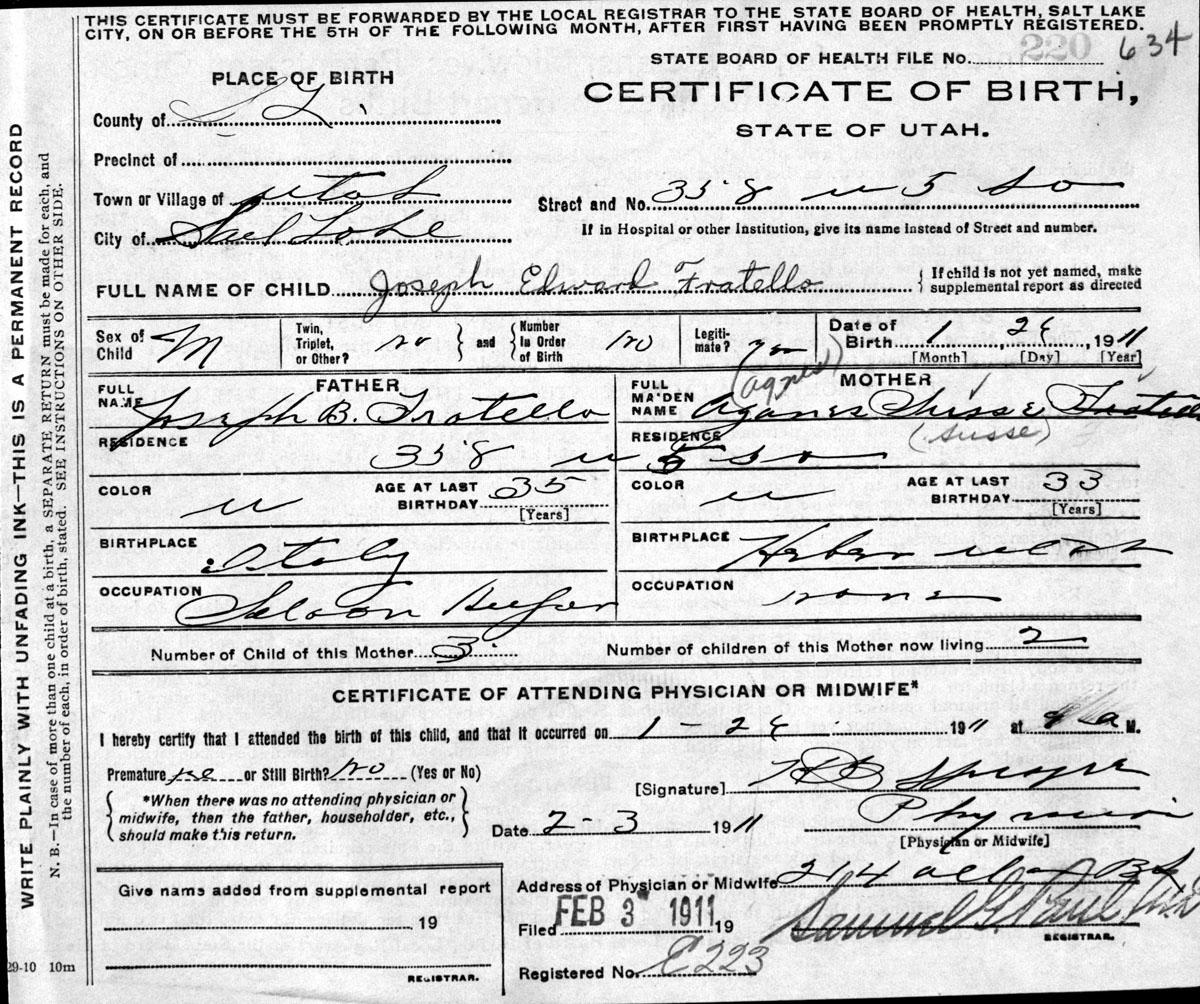 THIS CERTIFICATE MUST BE FORWARDED BY THE LOCAL REGISTRAR TO THE STATE BOARD OF HEALTH, SALT LAKE
CITY, ON OR BEFORE THE 5TH OF THE FOLLOWING MONTH, AFTER FIRST HAVING BEEN PROMPTLY REGISTERED.
220 634
STATE BOARD OF HEALTH FILE No.
PLACE OF BIRTH
CERTIFICATE OF BIRTH,
STATE OF UTAH.
County of S L
Precinct of
Town or Village of Utah
Street and No. 358 W 5 So
City of Salt Lake
If in Hospital or other Institution, give its name instead of Street and number.
FULL NAME OF CHILD Joseph Edward Fratello
If child is not yet named, make
supplemental report as directed
Sex of Child M
Twin, Triplet, or Other? no
and
Number in Order of Birth no
Legiti-mate?
Date of Birth 1 1911
[Month] [Day] [Year]
FATHER
FULL NAME Joseph B. Fratello
MOTHER
(Agnes)
FULL MAIDEN NAME Aganes Susse Fratello
(Susse)
RESIDENCE 358 W 5 So
RESIDENCE
COLOR W
AGE AT LAST BIRTHDAY 35
[Years]
COLOR W
AGE AT LAST BIRTHDAY 33
[Years]
BIRTHPLACE Italy
BIRTHPLACE Heber Utah
OCCUPATION Saloon Keeper
OCCUPATION none
Number of Child of this Mother 3
Number of children of this Mother now living 2
CERTIFICATE OF ATTENDING PHYSICIAN OR MIDWIFE*
I hereby certify that I attended the birth of this child, and that it occurred on 1 - 1911 at a M.
Premature or Still Birth? no (Yes or No)
[Signature]
*When there was no attending physician or
midwife, then the father, householder, etc.,
should make this return.
Date 2-3 1911
[Physician or Midwife]
Give name added from supplemental report
19
REGISTRAR.
Address of Physician or Midwife 214
Filed FEB 3 1911 19
Samuel G. Paul
REGISTRAR.
Registered No. E223
29-10 10m
WRITE PLAINLY WITH UNFADING INK—THIS IS A PERMANENT RECORD
N. B.—In case of more than one child at a birth, a SEPARATE RETURN must be made for each, and
the number of each, in order of birth, stated. SEE INSTRUCTIONS ON OTHER SIDE.